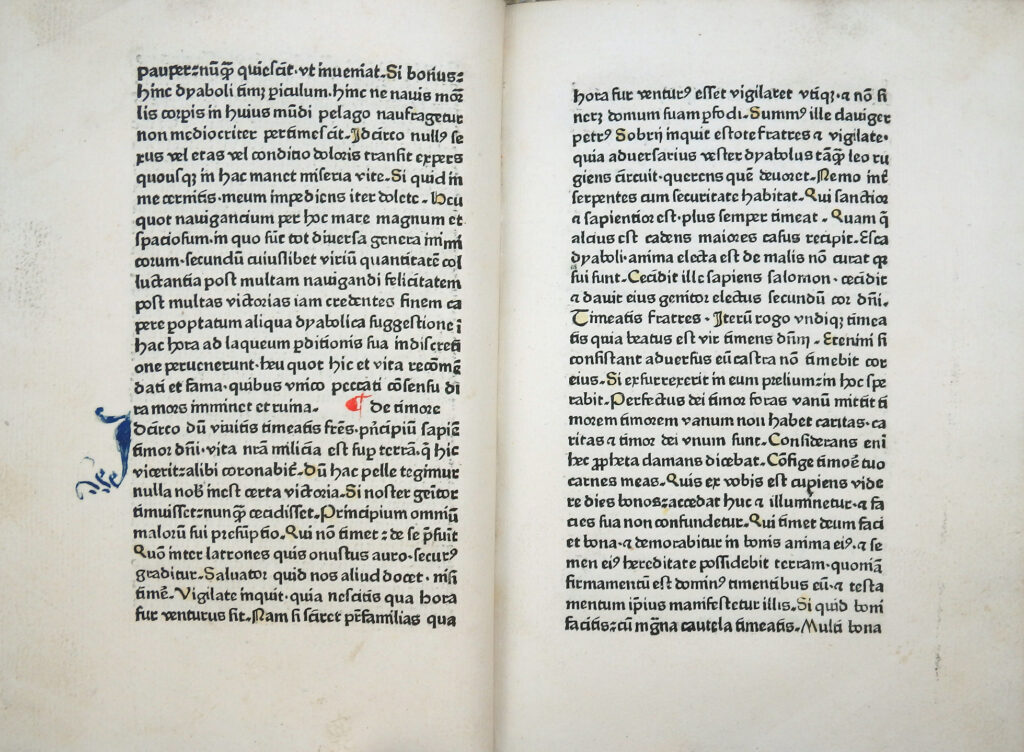 pauper: nūq̄ꝫ quiescāt · vt inueniat. Si bonus:
hinc dyaboli timꝫ ꝑiculum. hinc ne nauis mor̄
lis corꝑis in huius mūdi pelago naufragetur
non mediocriter pertimescāt. Idcirco nullꝰ se
xus vel etas vel conditio doloris transit expers
quousqꝫ in hac manet miseria vite. Si quid in
me cernitis · meum impediens iter doletc. Heu
quot nauigancium per hoc mare magnum et
spaciosum · in quo sūt tot diuersa genera inimi
corum · secundū cuiuslibet viriū quantitatē col
luctantia post multam nauigandi felicitatem
post multas victorias iam credentes finem ca
pere poptatum aliqua dyabolica suggestione ī
hac hora ad laqueum ꝑditionis sua indiscreti
one peruenerunt · heu quot hic et vita recōmē
dati et fama · quibus vnico peccati cōsensu di
ra mors imminet et ruina. ¶ de timore
Idcirco dū viuitis timeatis frēs · pn̄cipiū sapiē
timor dn̄i · vita nr̄a milicia est suꝑ terrā · q̄ hic
vicerit: alibi coronabiť. Dū hac pelle tegimur
nulla nob̄ inest certa victoria. Si noster geītor
timuisset: nunq̄ꝫ cecidisset. Principium omniū
malorū fui presūptio. Qui nō timet: de se p̄sūit
Quō inter latrones quis onustus auro · securꝰ
graditur. Saluator quid nos aliud docet · nisi
timē. Vigilate inquit · quia nescitis qua hora
fur venturus sit. Nam si sciret pr̄familias qua
hora fur venturꝰ esset vigilaret vtiqꝫ · ⁊ nō si
neret domum suam ꝑfodi. Summꝰ ille clauiger
petrꝰ Sobrij inquit estote fratres ⁊ vigilate ·
quia aduersarius vester dyabolus tāq̄ꝫ leo ru
giens circuit · querens quē deuoret. Nemo int̄
serpentes cum securitate habitat. Qui sanctior
⁊ sapientior est · plus semper timeat. Quam q̄
alcius est cadens maiores casus recipit. Esca
dyaboli · anima electa est de malis nō curat qꝛ
sui sunt. Cecidit ille sapiens salomon · cecidit
⁊ dauit eius genitor electus secundū cor dn̄i.
Timeatis fratres. Iterū rogo vndiqꝫ timea
tis quia beatus est vir timens dūm. Etenim si
consistant aduersus eū castra nō timebit cor
eius. Si exsurrexerit in eum prelium: in hoc spe
rabit. Perfectus dei timor foras vanū mittit ti
morem timorem vanum non habet caritas · ca
ritas ⁊ timor dei vnum sunt. Considerans enī
hec ꝓpheta clamans dicebat. Cōfige timoē tuo
carnes meas. Quis ex vobis est cupiens vide
re dies bonos: accedat huc ⁊ illuminetur · ⁊ fa
cies sua non confundetur. Qui timet deum faci
et bona · ⁊ demorabitur in bonis anima eiꝰ · ⁊ se
men eiꝰ hereditate possidebit terram · quoniā
firmamentū est dominꝰ timentibus eū · ⁊ testa
mentum ip̄ius manifestetur illis. Si quid boni
facitis: cū mg̅na cautela timeatis. Multi bona